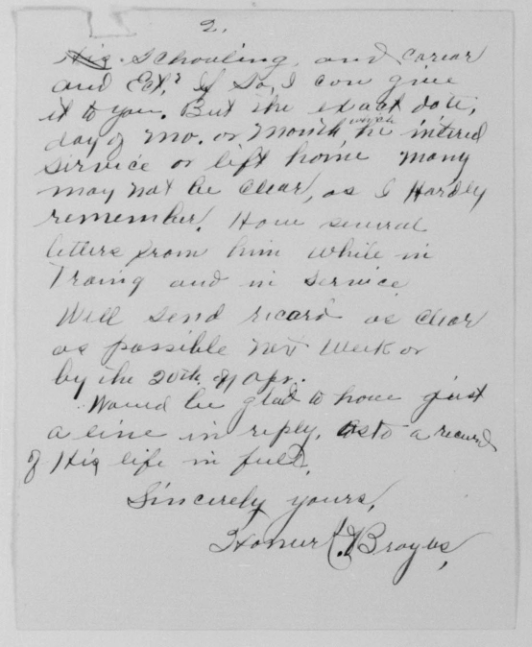 2.
His Schooling, and carear
and Ect,? If So, I can give
it to you. But the exact date,
day of mo. or month which he intered
service or lift home many
may not be clear, as I Hardly
remember. Have several
letters from him while in
Traing and in service
Will send record as clear
as possible next week or
by the 20th of Apr.
Would be glad to have just
a line in reply. As to a record
of His life in full.
Sincerely yours,